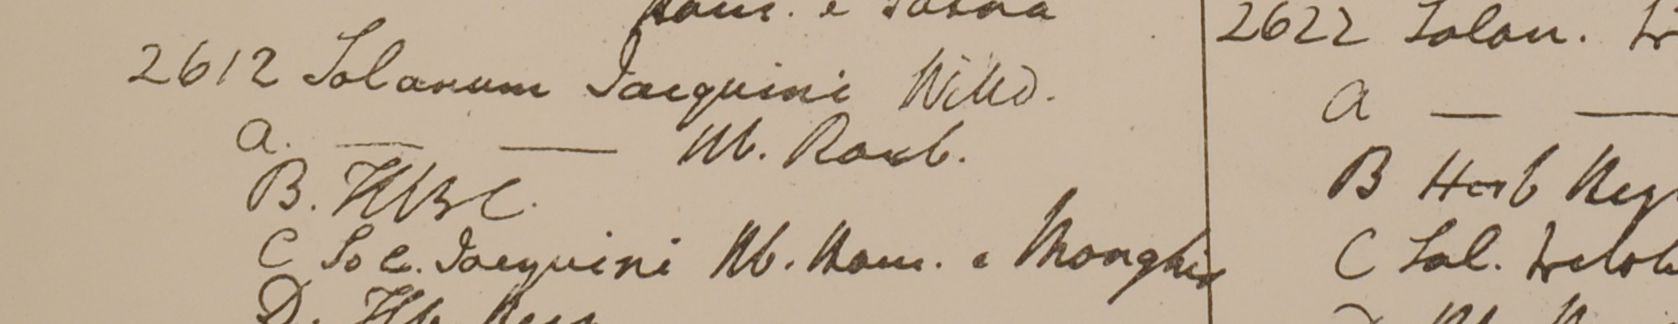 Ham. e
2612 Solanum Jacquini Willd.
a. — — Hb. Roxb.
B. HBC.
C Sol. Jacquini Hb. Ham. e Monghir
D. Hb.
2622 Solan.
a — —
B Herb
C Sol.